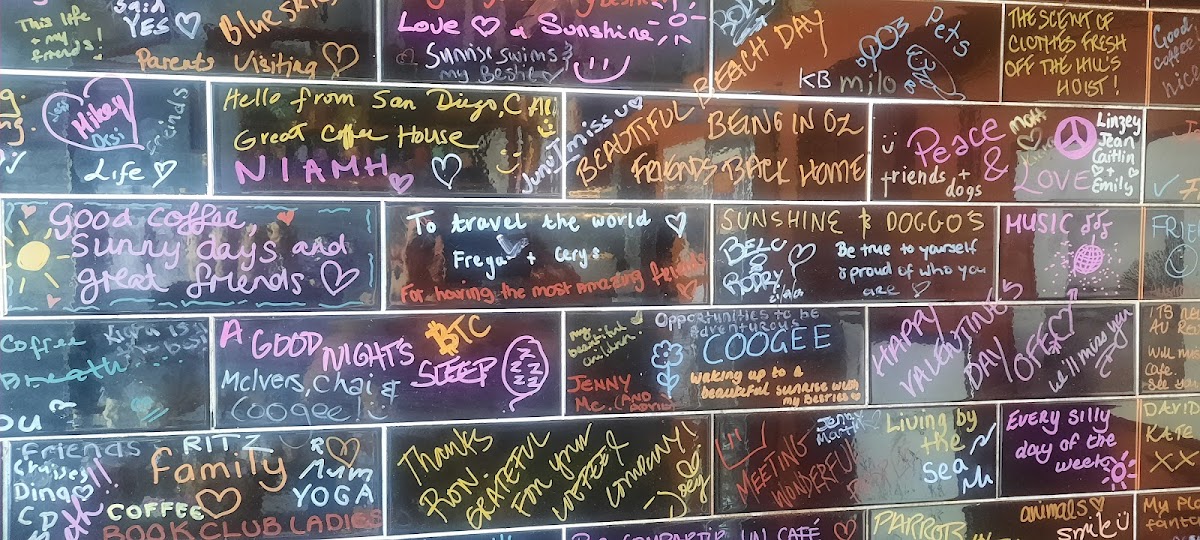 This life
+ my
friends!
said
YES
Blue skies
Parents Visiting
Love a Sunshine
Sunrise swims &
my Bestie
BEACH DAY
KB milo
Pets
THE SCENT OF
CLOTHES FRESH
OFF THE HILL'S
HOIST!
Good
coffee
nice
Mikey
Life
friends
Hello from San Diego, CA
Great Coffee House
NIAMH
I miss u
BEAUTIFUL
BEING IN OZ
FRIENDS BACK HOME
Peace
&
LOVE
friends +
dogs
Linzey
Jean
Caitlin
+
Emily
Good coffee,
Sunny days and
great friends
To travel the world
Freya + Cerys
For having the most amazing friends
SUNSHINE & DOGGO'S
BELC
&
RODRY
Be true to yourself
& proud of who you
are
MUSIC
Coffee
Breath
A GOOD
NIGHTS
SLEEP
BTC
McIvers, Chai &
Coogee!
my
beautiful
children
JENNY
Mc.
Opportunities to be
adventurous
COOGEE
waking up to a
beautiful sunrise with
my Besties
HAPPY
VALENTINE'S
DAY OFFE
we'll miss you
Friends
RITZ
Family
COFFEE
BOOK CLUB LADIES
Mum
YOGA
Thanks
RON.
GRATEFUL
FOR your
COFFEE &
COMPANY!
Joey
MEETING
WONDERFUL
Jenny
Martin
Living by
the
sea
EVERY Silly
day of the
week
DAVID
KATE
XX
UN CAFÉ
PARROTS
animals
smile